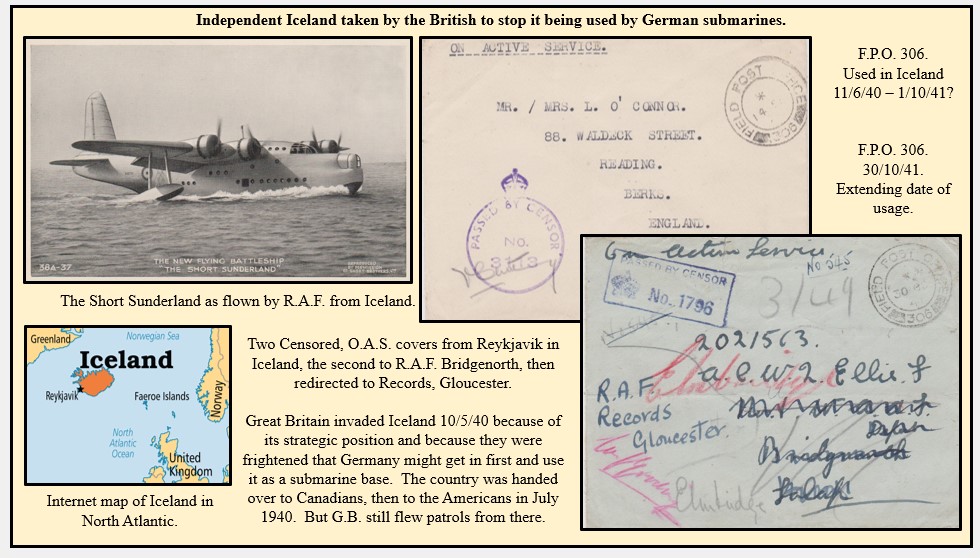 Independent Iceland taken by the British to stop it being used by German submarines.
38A-37
THE NEW FLYING BATTLESHIP
"THE SHORT SUNDERLAND"
The Short Sunderland as flown by R.A.F. from Iceland.
ON ACTIVE SERVICE.
FIELD POST OFFICE
MR. / MRS. L. O' CONNOR.
88. WALDECK STREET.
READING.
BERKS.
ENGLAND.
PASSED BY CENSOR
No.
F.P.O. 306.
Used in Iceland
11/6/40 – 1/10/41?
F.P.O. 306.
30/10/41.
Extending date of
usage.
On Active Service
No 545
PASSED BY CENSOR
No. 1796
3/49
FIELD POST OFFICE
2021563.
a.c.w.2. Ellis. J
R.A.F.
Records
Gloucester.
Bridgnorth
Greenland
Norwegian Sea
Iceland
Reykjavik
Faeroe Islands
Norway
North
Atlantic
Ocean
United
Kingdom
Internet map of Iceland in
North Atlantic.
Two Censored, O.A.S. covers from Reykjavik in
Iceland, the second to R.A.F. Bridgenorth, then
redirected to Records, Gloucester.
Great Britain invaded Iceland 10/5/40 because of
its strategic position and because they were
frightened that Germany might get in first and use
it as a submarine base.  The country was handed
over to Canadians, then to the Americans in July
1940.  But G.B. still flew patrols from there.